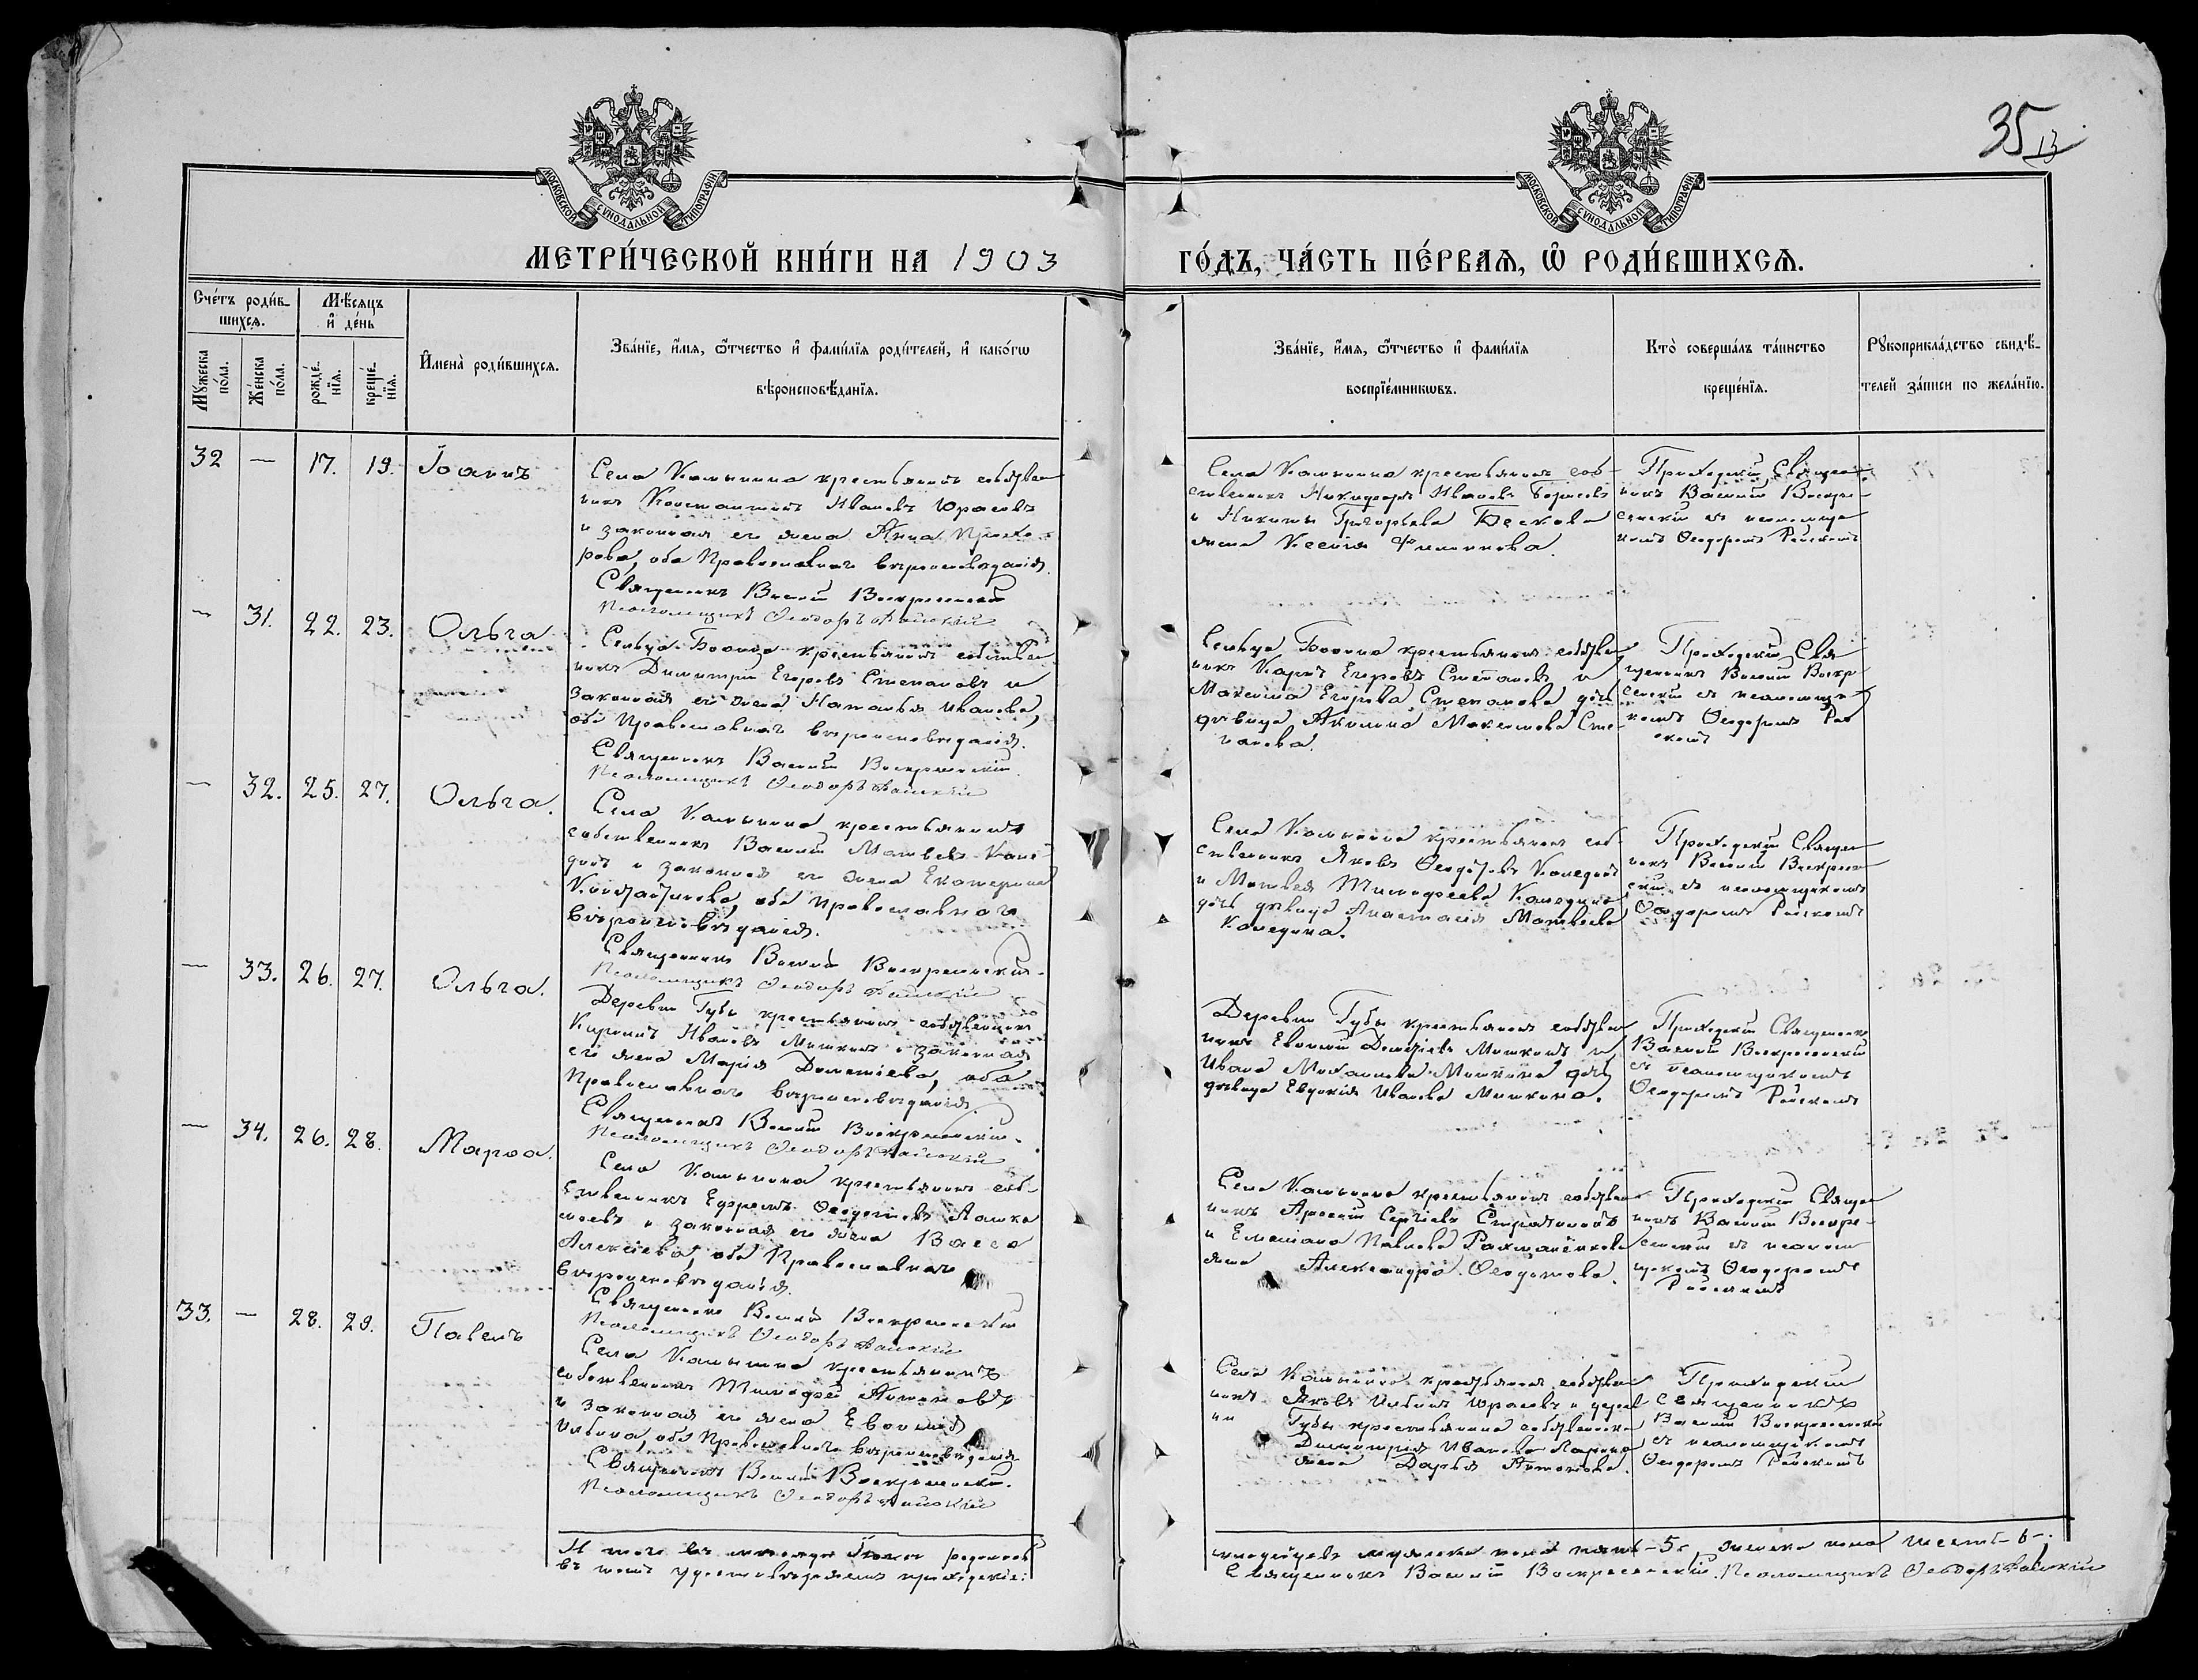 35 13
МОСКОВСКОЙ СѴНОДАЛЬНОЙ ТИПОГРАФІИ
МОСКОВСКОЙ СѴНОДАЛЬНОЙ ТИПОГРАФІИ
МЕТРИ́ЧЕСКОЙ КНИ́ГИ НА 1903
ГО́ДЪ, ЧА́СТЬ ПЕ́РВАЯ, Ѽ РОДИ́ВШИХСѦ.
Сче́тъ роди́в-
шихсѧ.
Мѣ́сяцъ
и҆ де́нь
Мꙋ́жеска
по́ла.
Же́нска
по́ла.
рожде́-
нїѧ.
креще́-
нїѧ.
И҆мена̀ роди́вшихсѧ.
Зва́нїе, и҆́мѧ, ѻ҆́тчество и҆ фами́лїѧ роди́телей, и҆ како́гѡ
вѣроисповѣ́данїѧ.
Зва́нїе, и҆́мѧ, ѻ҆́тчество и҆ фами́лїѧ
воспрїе́мникѡвъ.
Кто̀ соверша́лъ та́инство
креще́нїѧ.
Рꙋкоприкла́дство свидѣ́-
телей за́писи по жела́нїю.
32 — 17. 19. Іоаннъ
Села крестьянинъ собствен
никъ Константинъ Ивановъ Юрасовъ
и законная его жена Анна Прохо-
рова, оба Православнаго вѣроисповѣданія.
Священникъ Василій Воскресенскій
Псаломщикъ Ѳеодоръ Райскій
Села крестьянинъ соб-
ственникъ Никифоръ Ивановъ
и Никиты Григорьева
жена Ксенія Филиппова.
Приходскій Священ-
никъ Василій Воскре-
сенскій съ псаломщи
комъ Ѳеодоромъ Райскимъ
— 31. 22. 23. Ольга
Сельца крестьянинъ собствен
никъ Димитрій Егоровъ Степановъ и
законная его жена Наталья Иванова,
оба Православнаго вѣроисповѣданія.
Священникъ Василій Воскресенскій
Псаломщикъ Ѳеодоръ Райскій
Сельца крестьянинъ собствен
никъ Карпъ Егоровъ Степановъ и
Максима Егорова Степанова дочь
дѣвица Акилина Максимова Сте-
панова.
Приходскій Свя
щенникъ Василій Воскр
сенскій съ псаломщи
комъ Ѳеодоромъ Рай
скимъ
— 32. 25. 27. Ольга.
Села крестьянинъ
собственникъ Василій Матвѣевъ Кале-
динъ и законная его жена Екатерина
Константинова, оба православнаго
вѣроисповѣданія.
Священникъ Василій Воскресенскій
Псаломщикъ Ѳеодоръ Райскій
Села крестьянинъ соб-
ственникъ Яковъ Каледин
и Матвѣя Тимофеева Каледина
дочь дѣвица Анастасія Матвѣева
Каледина.
Приходскій Священ
никъ Василій Воскресен
скій съ псаломщикомъ
Ѳеодоромъ Райскимъ
— 33. 26. 27. Ольга.
Деревни Губы крестьянинъ собственникъ
Ивановъ Мишкинъ и законная
его жена Марія Дометіева, оба
Православнаго вѣроисповѣданія.
Священникъ Василій Воскресенскій.
Псаломщикъ Ѳеодоръ Райскій
Деревни Губы крестьянинъ собствен
никъ Мишкинъ и
Ивана Михаилова Мишкина дочь
дѣвица Евдокія Иванова Мишкина.
Приходскій Священникъ
Василій Воскресенскій
съ псаломщикомъ
Ѳеодоромъ Райскимъ
— 34. 26. 28. Марѳа.
Села крестьянинъ соб-
ственникъ Ефремъ Ѳедотовъ
и законная его жена Васса
Алексіева, оба Православнаго
вѣроисповѣданія.
Священникъ Василій Воскресенскій
Псаломщикъ Ѳеодоръ Райскій
Села крестьянинъ собствен
никъ Арсеній Сергіевъ
и Емеліана Павлова
жена Александра Ѳедотова.
Приходскій Священ
никъ Василій Воскре-
сенскій съ псалом
щикомъ Ѳеодоромъ
Райскимъ
33. — 28. 29. Павелъ
Села крестьянинъ
собственникъ Тимофей Антоновъ
и законная его жена Евѳимія
Ильина, оба Православнаго вѣроисповѣданія
Священникъ Василій Воскресенскій.
Псаломщикъ Ѳеодоръ Райскій
Села крестьянинъ собствен
никъ Яковъ Ильинъ Юрасовъ и дерев
ни Губы крестьянина собственника
Димитрія Иванова
жена Дарья Антонова.
Приходскій
Священникъ
Василій Воскресенскій
съ псаломщикомъ
Ѳеодоромъ Райскимъ
Итого въ мѣсяцѣ родилось
въ томъ удостовѣряемъ приходскіе:
мужеска пола пять -5-, женска пола шесть -6-.
Священникъ Василій Воскресенскій. Псаломщикъ Ѳеодоръ Райскій